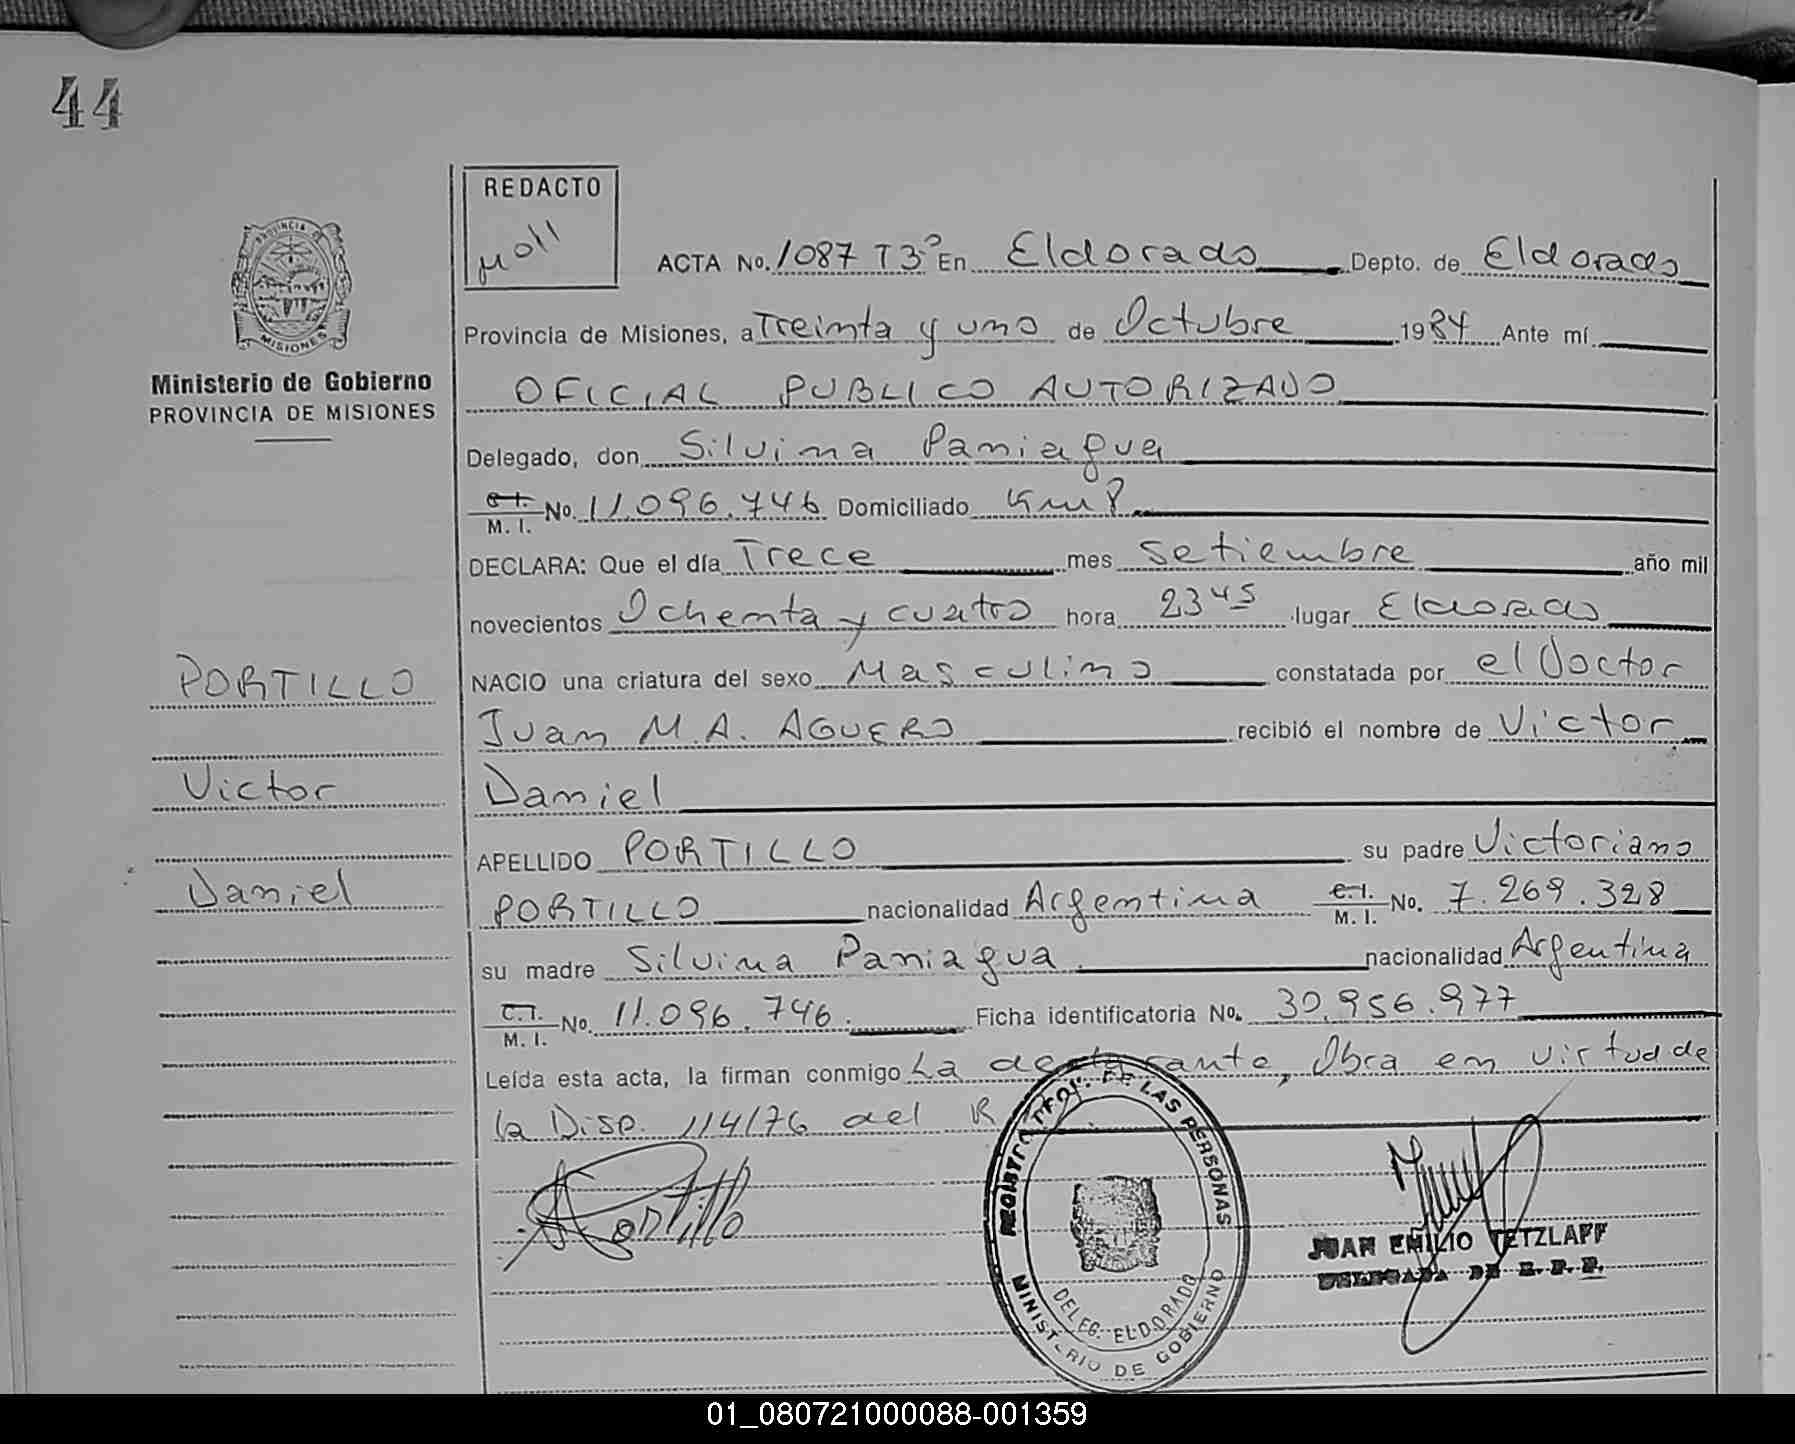 44
REDACTO
Moll
PROVINCIA DE
MISIONES
Ministerio de Gobierno
PROVINCIA DE MISIONES
ACTA No. 1087 T3º En Eldorado Depto. de Eldorado
Provincia de Misiones, a Treinta y uno de Octubre 1984 Ante mí
OFICIAL PUBLICO AUTORIZADO
Delegado, don Silvina Paniagua
C.I. M.I. No. 11.096.746 Domiciliado Km 8
DECLARA: Que el día Trece mes Setiembre año mil
novecientos Ochenta y cuatro hora 23 45 lugar Eldorado
NACIO una criatura del sexo Masculino constatada por el Doctor
Juan M.A. AGUERO recibió el nombre de Victor
Daniel
APELLIDO PORTILLO su padre Victoriano
PORTILLO nacionalidad Argentina C.I. M.I. No. 7.269.328
su madre Silvina Paniagua. nacionalidad Argentina
C.I. M.I. No. 11.096.746. Ficha identificatoria No. 30.956.977
Leída esta acta, la firman conmigo La declarante, Obra en virtud de
la Disp. 114/76 del R
PORTILLO
Victor
Daniel
Portillo
REGISTRO PROV. DE LAS PERSONAS
DELEG. ELDORADO
MINISTERIO DE GOBIERNO
JUAN EMILIO TETZLAFF
DELEGADA DE R.P.P.
01_080721000088-001359